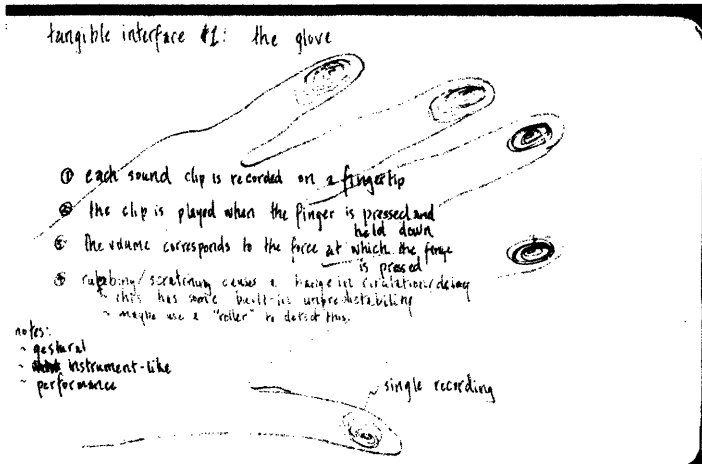 tangible interface #1: the glove
① each sound clip is recorded on a fingertip
② the clip is played when the finger is pressed and
held down
③ the volume corresponds to the force at which the finge
is pressed
④ rubbing/scratching causes a change in
~ this has some built-in unpredictability
~ maybe use a "roller" to detect this.
notes:
~ gestural
~ instrument-like
~ performance
single recording